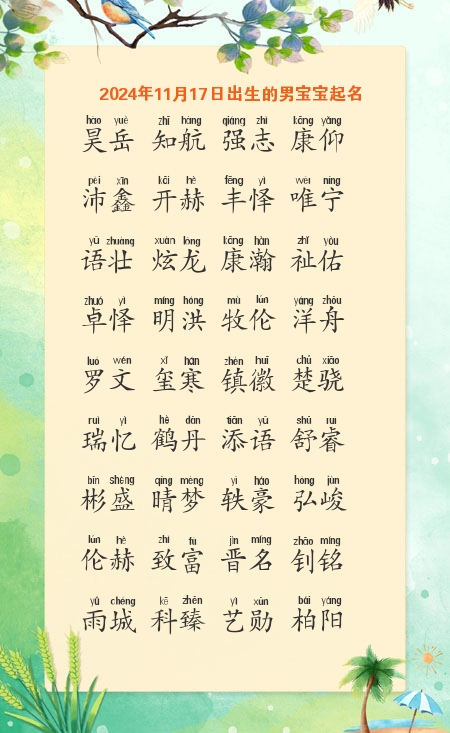 2024年11月17日出生的男宝宝起名
hào yuè zhī háng qiáng zhì kāng yǎng
昊岳 知航 强志 康仰
pèi xīn kāi hè fēng yì wéi níng
沛鑫 开赫 丰怿 唯宁
yǔ zhuàng xuàn lóng kāng hàn zhǐ yòu
语壮 炫龙 康瀚 祉佑
zhuó yì míng hóng mù lún yáng zhōu
卓怿 明洪 牧伦 洋舟
luó wén xǐ hán zhèn huī chǔ xiāo
罗文 玺寒 镇徽 楚骁
ruì yì hè dān tiān yǔ shū ruì
瑞忆 鹤丹 添语 舒睿
bīn shèng qíng mèng yì háo hóng jùn
彬盛 晴梦 轶豪 弘峻
lún hè zhì fù jìn míng zhāo míng
伦赫 致富 晋名 钊铭
yǔ chéng kē zhēn yì xūn bǎi yáng
雨城 科臻 艺勋 柏阳